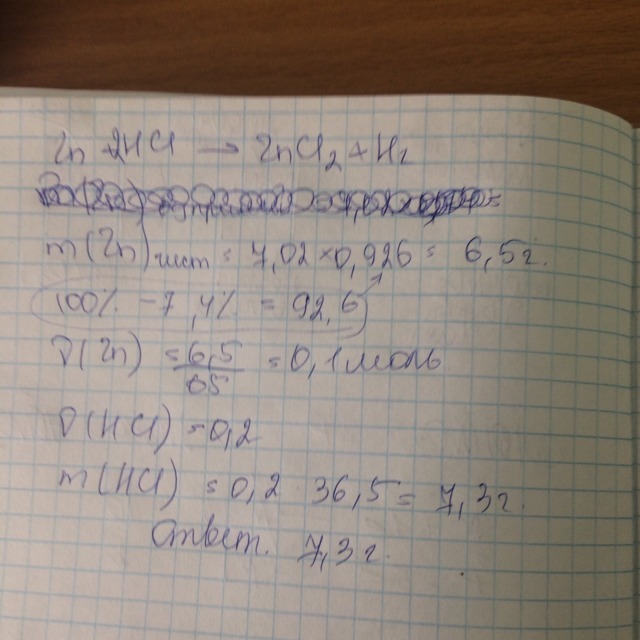 Zn 2HCl → ZnCl₂ + H₂
m(Zn) чист = 7,02 × 0,926 = 6,5 г.
100% - 7,4% = 92,6
ν(Zn) = 6,5/65 = 0,1 моль
ν(HCl) = 0,2
m(HCl) = 0,2 36,5 = 7,3 г.
Ответ. 7,3 г.